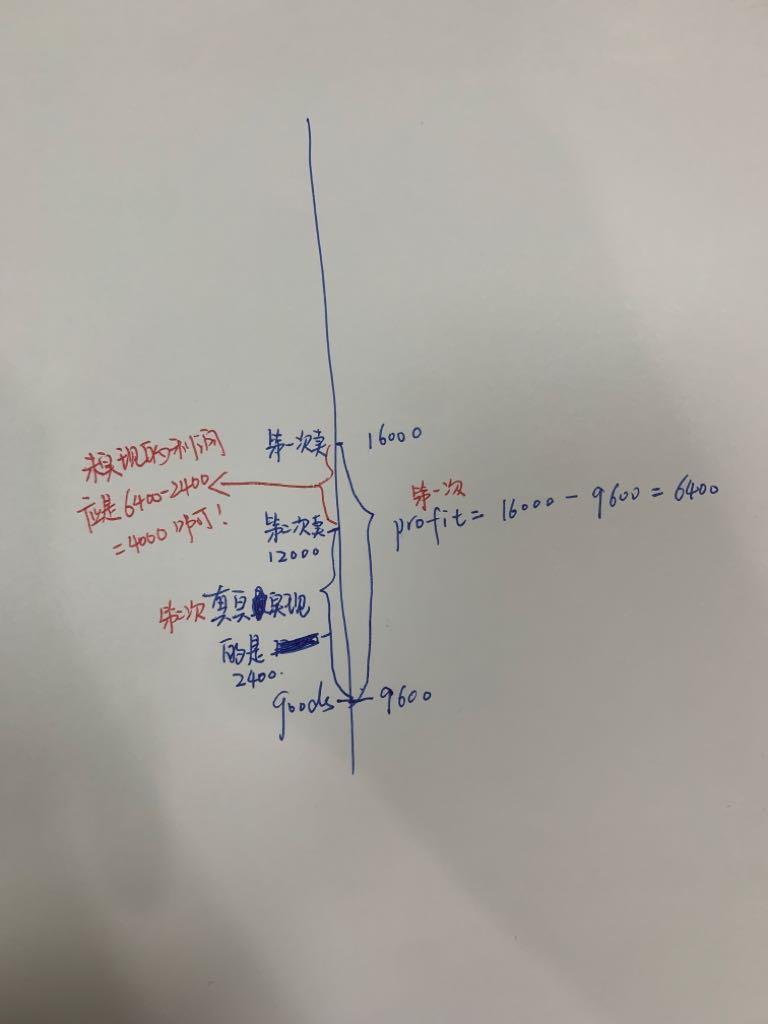 第一次卖
16000
未实现的利润
应是6400-2400
=4000即可!
第一次
profit = 16000 - 9600 = 6400
第二次卖
12000
第二次真正实现
的是
2400.
goods
9600